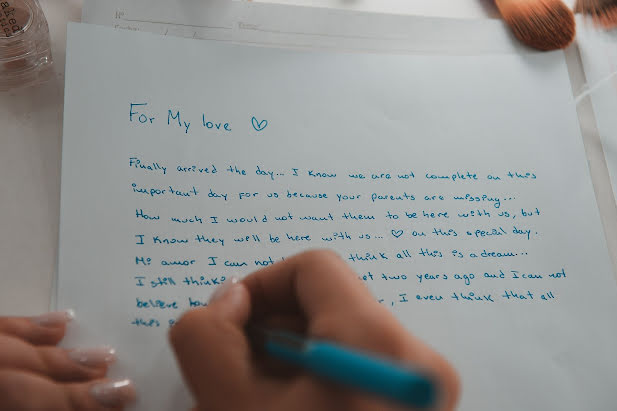 For My love ♡
Finally arrived the day... I know we are not complete on this
important day for us because your parents are missing...
How much I would not want them to be here with us, but
I know they will be here with us... ♡ on this special day.
Mi amor I can not think all this is a dream...
I still two years ago and I can not
believe , I even think that all
this